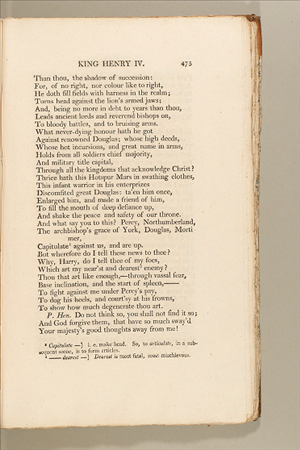 KING HENRY IV. 475
Than thou, the shadow of succession:
For, of no right, nor colour like to right,
He doth fill fields with harness in the realm;
Turns head against the lion's armed jaws;
And, being no more in debt to years than thou,
Leads ancient lords and reverend bishops on,
To bloody battles, and to bruising arms.
What never-dying honour hath he got
Against renowned Douglas; whose high deeds,
Whose hot incursions, and great name in arms,
Holds from all soldiers chief majority,
And military title capital,
Through all the kingdoms that acknowledge Christ?
Thrice hath this Hotspur Mars in swathing clothes,
This infant warrior in his enterprizes
Discomfited great Douglas: ta'en him once,
Enlarged him, and made a friend of him,
To fill the mouth of deep defiance up,
And shake the peace and safety of our throne.
And what say you to this? Percy, Northumberland,
The archbishop's grace of York, Douglas, Morti
mer,
Capitulate⁴ against us, and are up.
But wherefore do I tell these news to thee?
Why, Harry, do I tell thee of my foes,
Which art my near'st and dearest⁵ enemy?
Thou that art like enough,—through vassal fear,
Base inclination, and the start of spleen,——
To fight against me under Percy's pay,
To dog his heels, and court'sy at his frowns,
To show how much degenerate thou art.
P. Hen. Do not think so, you shall not find it so;
And God forgive them, that have so much sway'd
Your majesty's good thoughts away from me!
⁴ Capitulate —] i. e. make head. So, to articulate, in a sub-
sequent scene, is to form articles.
⁵ —— dearest —] Dearest is most fatal, most mischievous.